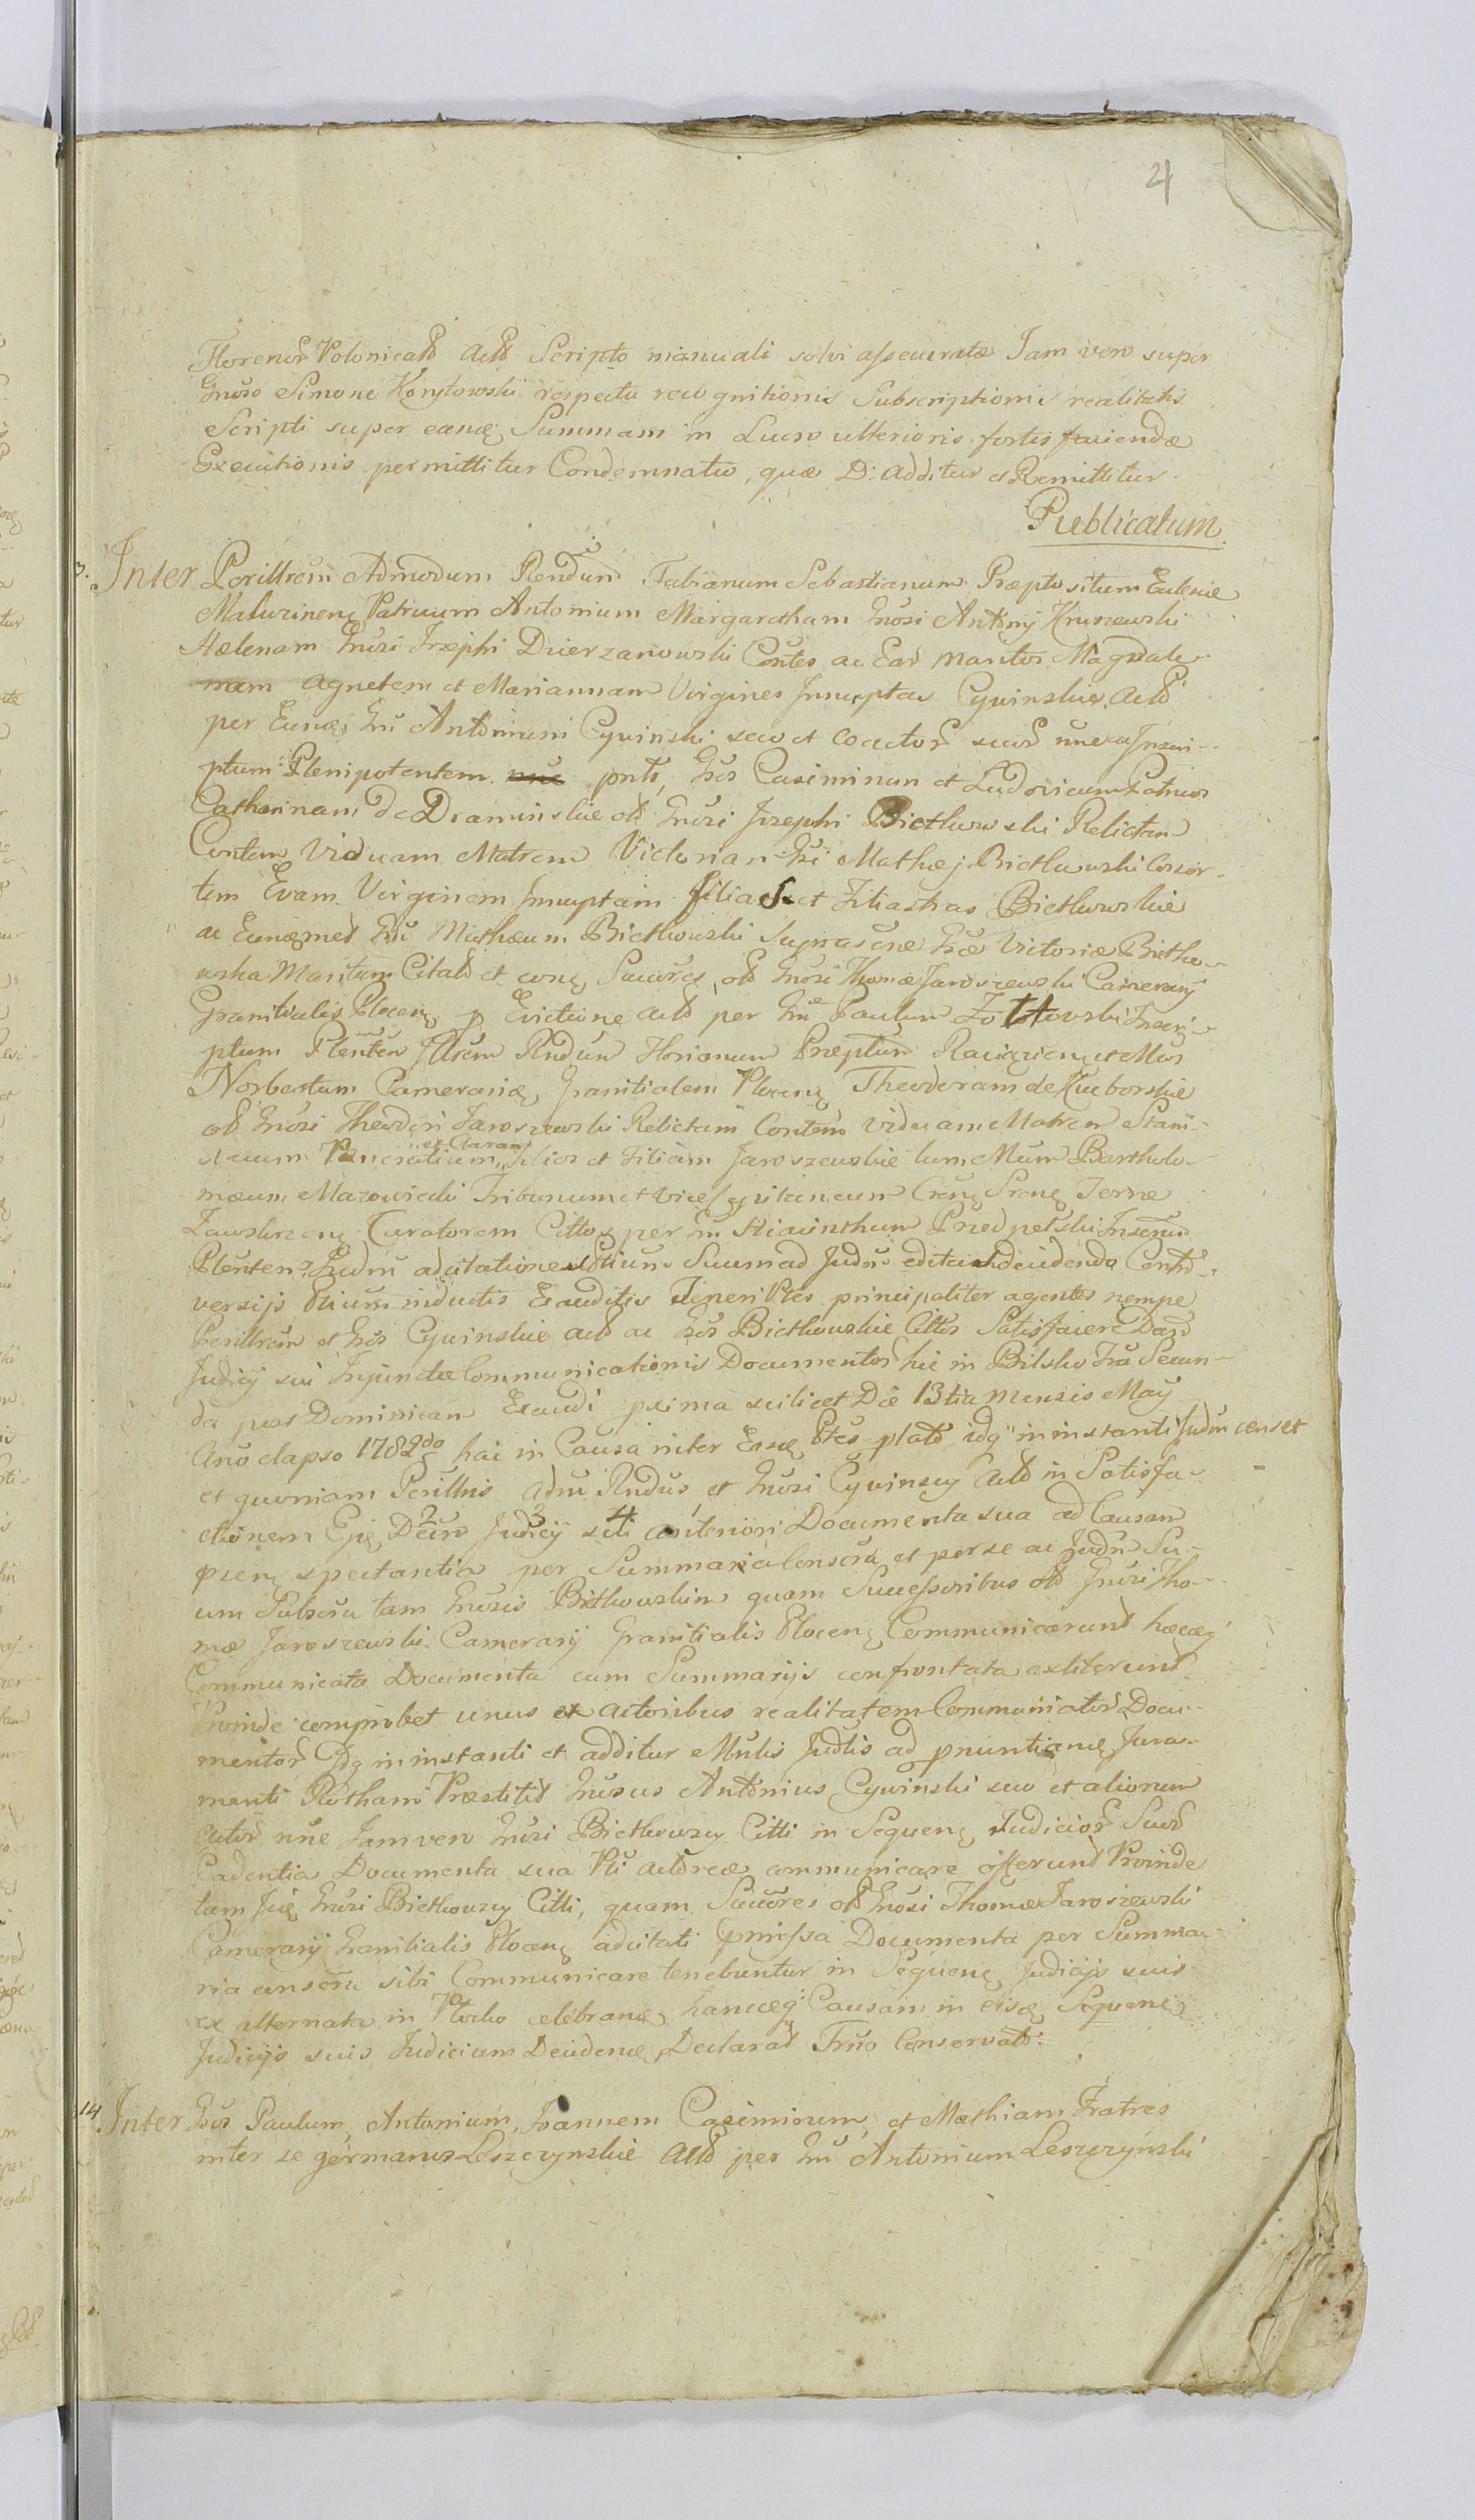 4
Florenor Polonicald Actd Scripto manuali solvi assecuratæ Jam vero super
Gnoso Simone Korytowski respectu recognitionis Subscriptionis realitatis
Scripti super eanq Summam in Lucro ulterioris fortis faciendæ
Executionis permittitur Condemnatio, quæ D: additur et Remittitur
Publicatum
3. Inter Perillrem Admodum Rendum Fabianum Sebastianum Præpositum Ecclesiæ
Maluzinens Patruum Antonium Margaretham Gnosi Antonij Kruszewski
Hælenam Gnosi Josephi Dzierzanowski Contes ac Ear maritos Magdale-
nam Agnetem et Mariannam Virgines Innuptas Cywinskie Actd
per Eunq Gnu Antonium Cywinski suo et coactor suor nne Inscri-
ptum Plenipotentem pnts, Gsos Casimirum et Ludovicum Patruos
Catharinam de Draminskie old Gnosi Josephi Bietkowski Relictam
Contem Viduam Matrem Victoriam Gsi Mathæj Bietkowski Consor-
tem Evam Virginem Innuptam filias et Filiastras Bietkowskie
ac Eunqmet Gnu Mathæum Bietkowski suprascnæ Gsæ Victoriæ Bietko-
wska Maritum Citatd et conq Succres old Gnosi Thomæ Jaroszewski Camerarij
Granitialis Plocens p Evictione actd per Gnu Paulum Zototowski Inscri-
ptum Plenten Illsem Rndum Florianum Præptum Raciązens et Mcos
Norbertum Camerariæ Granitialem Plocens Theodoram de Kuborskie
old Gnosi Theodori Jaroszewski Relictam Contem viduam Matrem Stani-
slaum Pancratium et Claram Filios et Filiam Jaroszewskie tum Mcum Bartholo-
mæum Mazowiecki Tribunum et Vice Capitaneum Crens Srens Terræ
Zawskrzens Curatorem Cittos per Gnu Hiacinthum Przedpelski Inscrum
Plenten. Judm adcitatione Ptium Suum ad Judm edita decidenda Contro-
versijs Ptium inductis Exauditis Teneri Ptes principaliter agentes nempe
Perillrem et Gsos Cywinskie actd ac Gsos Bietkowskie Cittos Satisfacere Dard
Judicij sui Injunctæ Communicationis Documentor hic in Bilsko Fra Secun-
da post Dominicam Exaudi prima scilicet Die 13tia Mensis Maij
Ano elapso 1782do hac in Causa inter Easq Ptes platd idq in instanti Judm censet
et quoniam Perillris admu Rndus et Gnosi Cywinscy Actd in Satisfa-
ctionem Ejq Decro Judicij sui anteriori Documenta sua ad Causam
psens spectantia per Summaria Conscra et per se ac Judm Su-
um Subscra tam Gnosis Bietkowskim quam Successoribus old Gnosi Tho-
mæ Jaroszewski Camerarij Granitialis Plocens Communicarund hæcq
Communicata Documenta cum Summarijs confrontata extiterund
Proinde comprobet unus ex actoribus realitatem Communicator Docu-
mentor Idq in instanti et additur Mnlis Judlis ad pnuntianq Jura-
menti Rotham Præstitid Gnosus Antonius Cywinski suo et aliorum
actor nne Jam vero Gnosi Bietkowscy Citti in Sequens Judicior Suor
Cadentia Documenta sua Pti actoreæ communicare offerund Proinde
tam Jiq Gnosi Bietkowscy Citti, quam Succres old Gnosi Thomæ Jaroszewski
Camerarij Granitialis Plocens adcitati pmissa Documenta per Summa-
ria conscra sibi Communicare tenebuntur in Sequens Judicijs suis
ex alternata in Plocko celebranq hancq Causam in eisq Sequens
Judicijs suis Judicium Decidenq Declarad Trno Conservato.
14 Inter Gsos Paulum, Antonium, Joannem Casimirum, et Mathiam Fratres
inter se germanos Leszczynskie Actd per Gnu Antonium Leszczynski